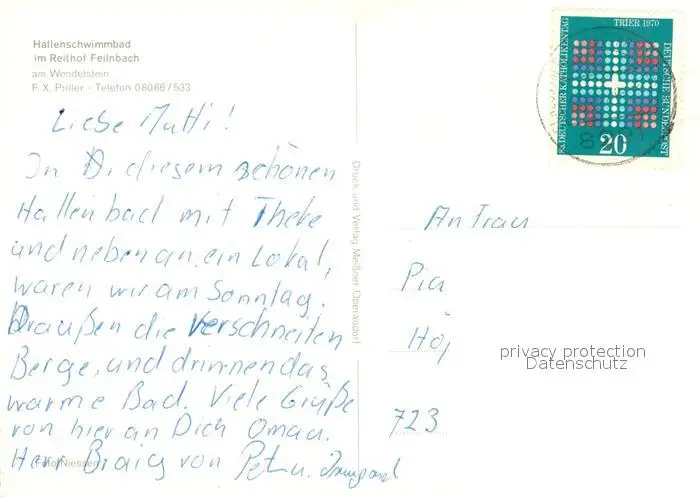 Hallenschwimmbad
im Reithof Feilnbach
am Wendelstein
F. X. Priller - Telefon 08066/533
Liebe Mutti!
In diesem schönen
Hallenbad mit Theke
und nebenan ein Lokal,
waren wir am Sonntag.
Draußen die verschneiten
Berge, und drinnen das
warme Bad. Viele Grüße
von hier an Dich Oma u.
Herr Braig von Pet u. Irmgard
Foto Niessen
Druck und Verlag Meißner Oberaudorf
TRIER 1970
83. DEUTSCHER KATHOLIKENTAG
DEUTSCHE BUNDESPOST
20
An Frau
Pia
723
privacy protection
Datenschutz